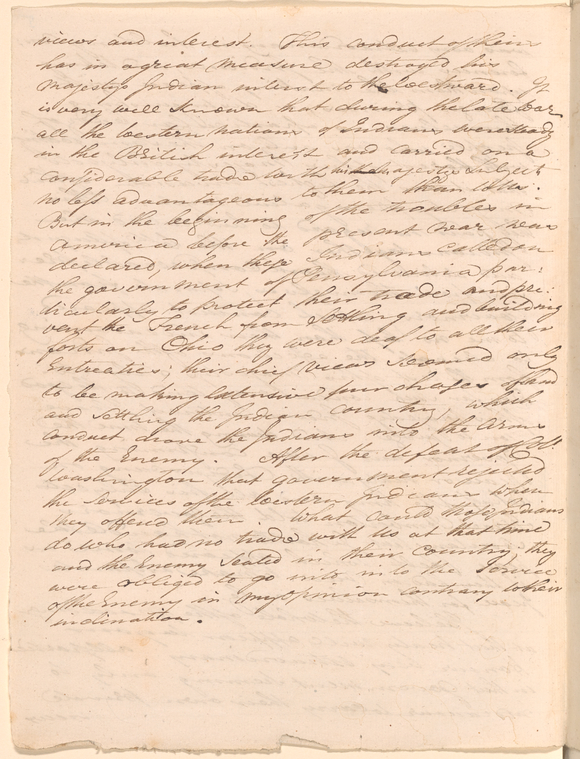 views and interest. This conduct of theirs
has in a great measure destroyed his
majestys Indian intrest to the westward. It
is very well known that during the late war
all the western nations of Indians were steady
in the British interest and carried on a
considerable trade with his Majestys subjects
no less advantageous to them than to us.
But in the beginning of the troubles in
america before the present war was
declared, when these Indians called on
the government of Pensylvania par:
ticularly to protect their trade and pre:
vent the French from Settling and building
forts on Ohio they were deaf to all their
Entreaties; their chief views seemed only
to be making Extensive purchases of land
and settling the Indian country, which
conduct drove the Indians into the Arms
of the Enemy. After the defeat of Coll.
Washington that government rejected
the services of the Western Indians when
they offered them. What could those Indians
do who had no trade with us at that time
and the Enemy Seated in their country; they
were obliged to go into into the service
of the Enemy in my opinion contrary to their
inclination.